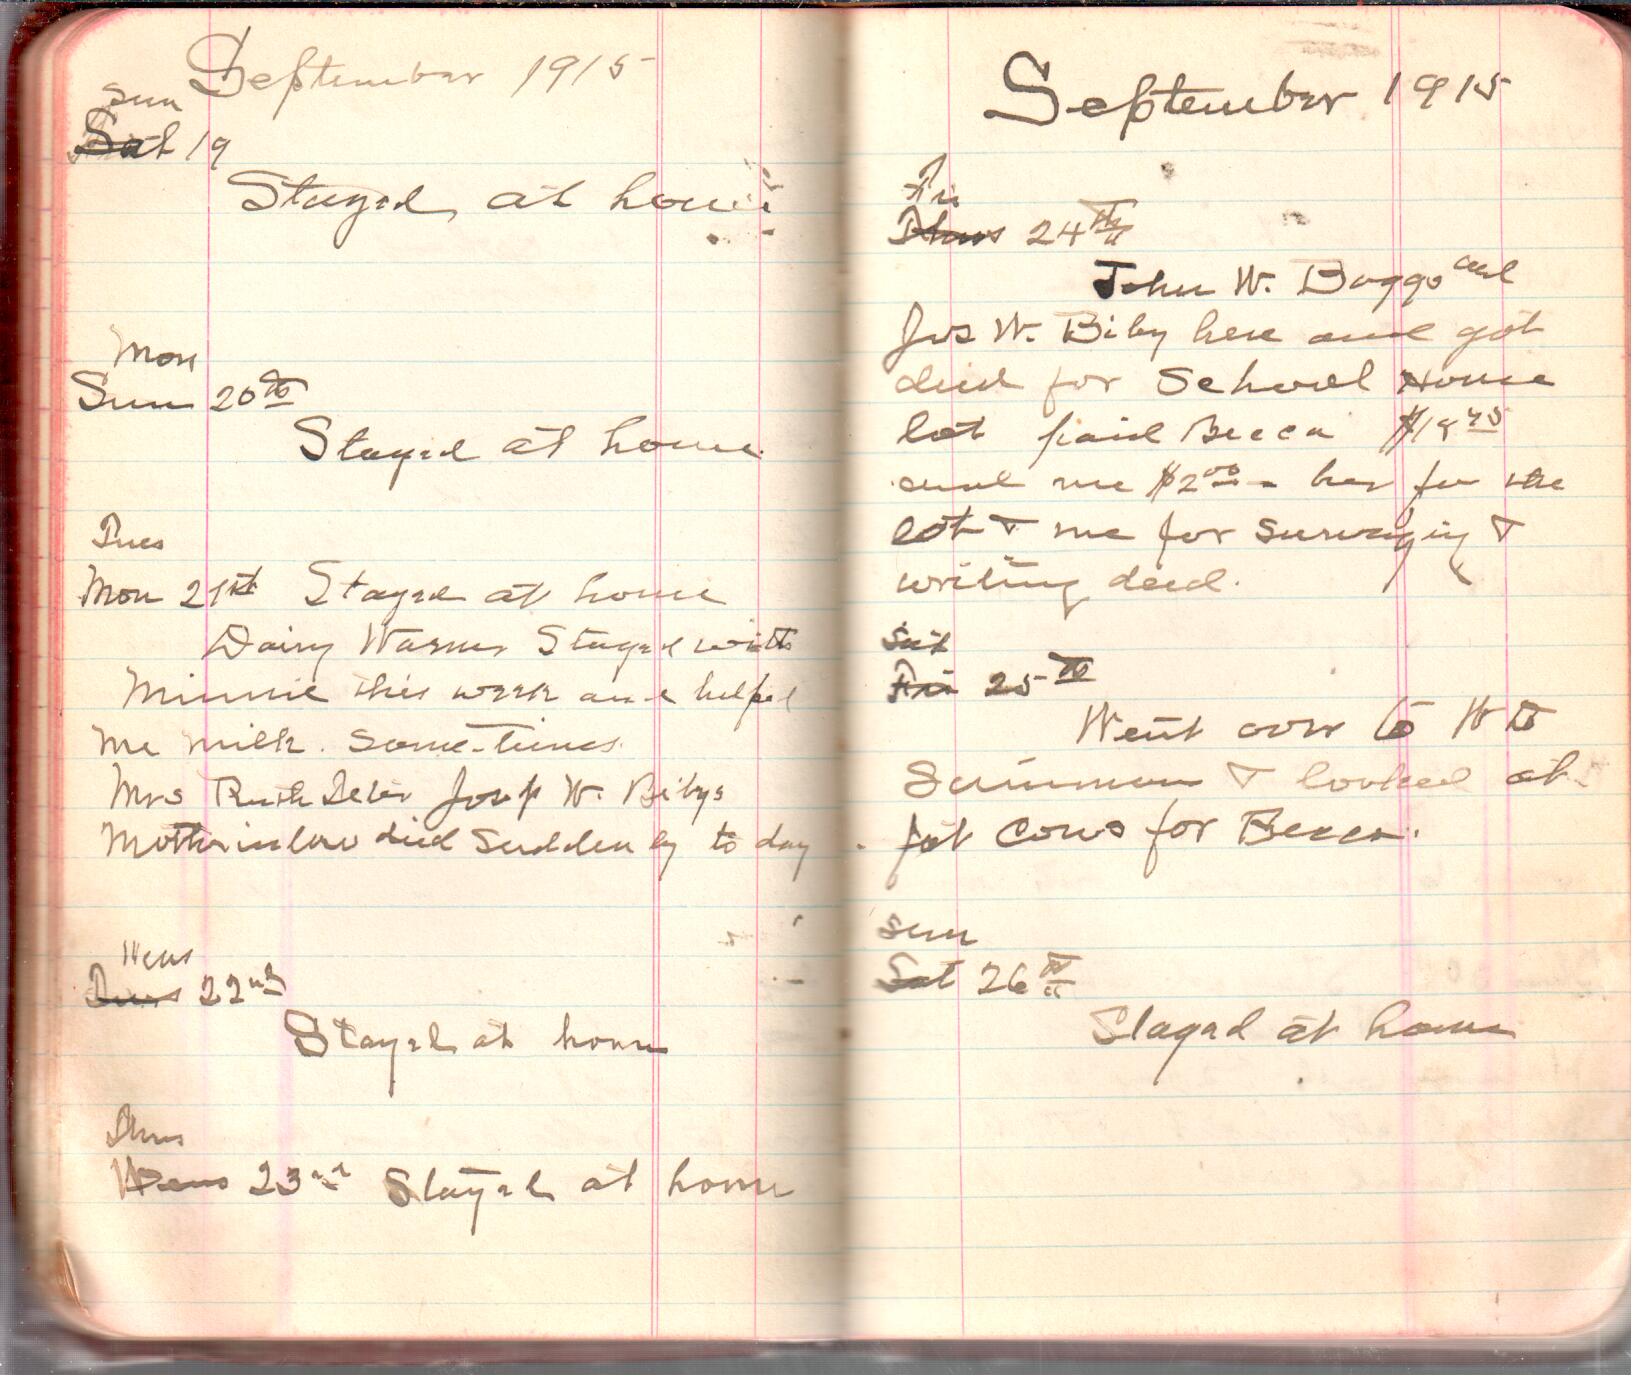 September 1915
Sun
Sat 19
Stayed at home
Mon
Sun 20th
Stayed at home
Tues
Mon 21st Stayed at home
Daisy Warner Stayed with
Minnie this week and helped
me milk. Some-times.
Mrs Ruth W. Bibys
Motherinlaw died Suddenly to day
Wens
Tues 22nd
Stayed at home
Thus
Wens 23rd Stayed at home
September 1915
Fri
Thus 24th
John W. Boggs and
Jos W. Biby here and got
deed for School House
lot paid Becca $18 75
and me $2 00 - her for the
lot & me for Surveying &
writing deed.
Sat
Fri 25th
Went over to W D
& looked at
fat Cows for Becca.
Sun
Sat 26th
Stayed at home